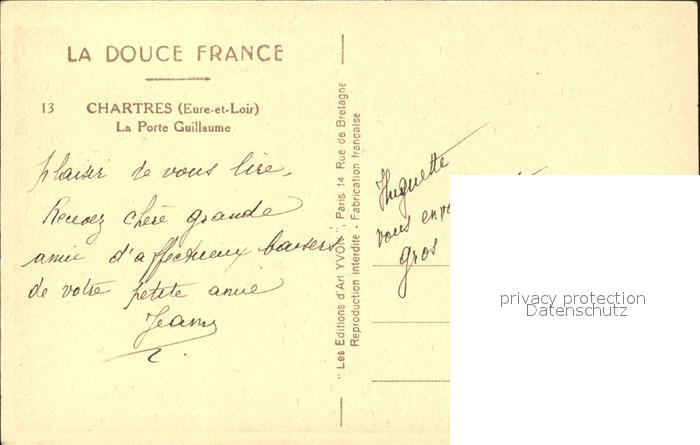 LA DOUCE FRANCE
13 CHARTRES (Eure-et-Loir)
La Porte Guillaume
plaisir de vous lire.
Recevez chère grande
amie d'affectueux baisers
de votre petite amie
" Les Editions d'Art YVON ", Paris 14 Rue de Bretagne
Reproduction interdite - Fabrication française
Huguette
vous
gros
privacy protection
Datenschutz